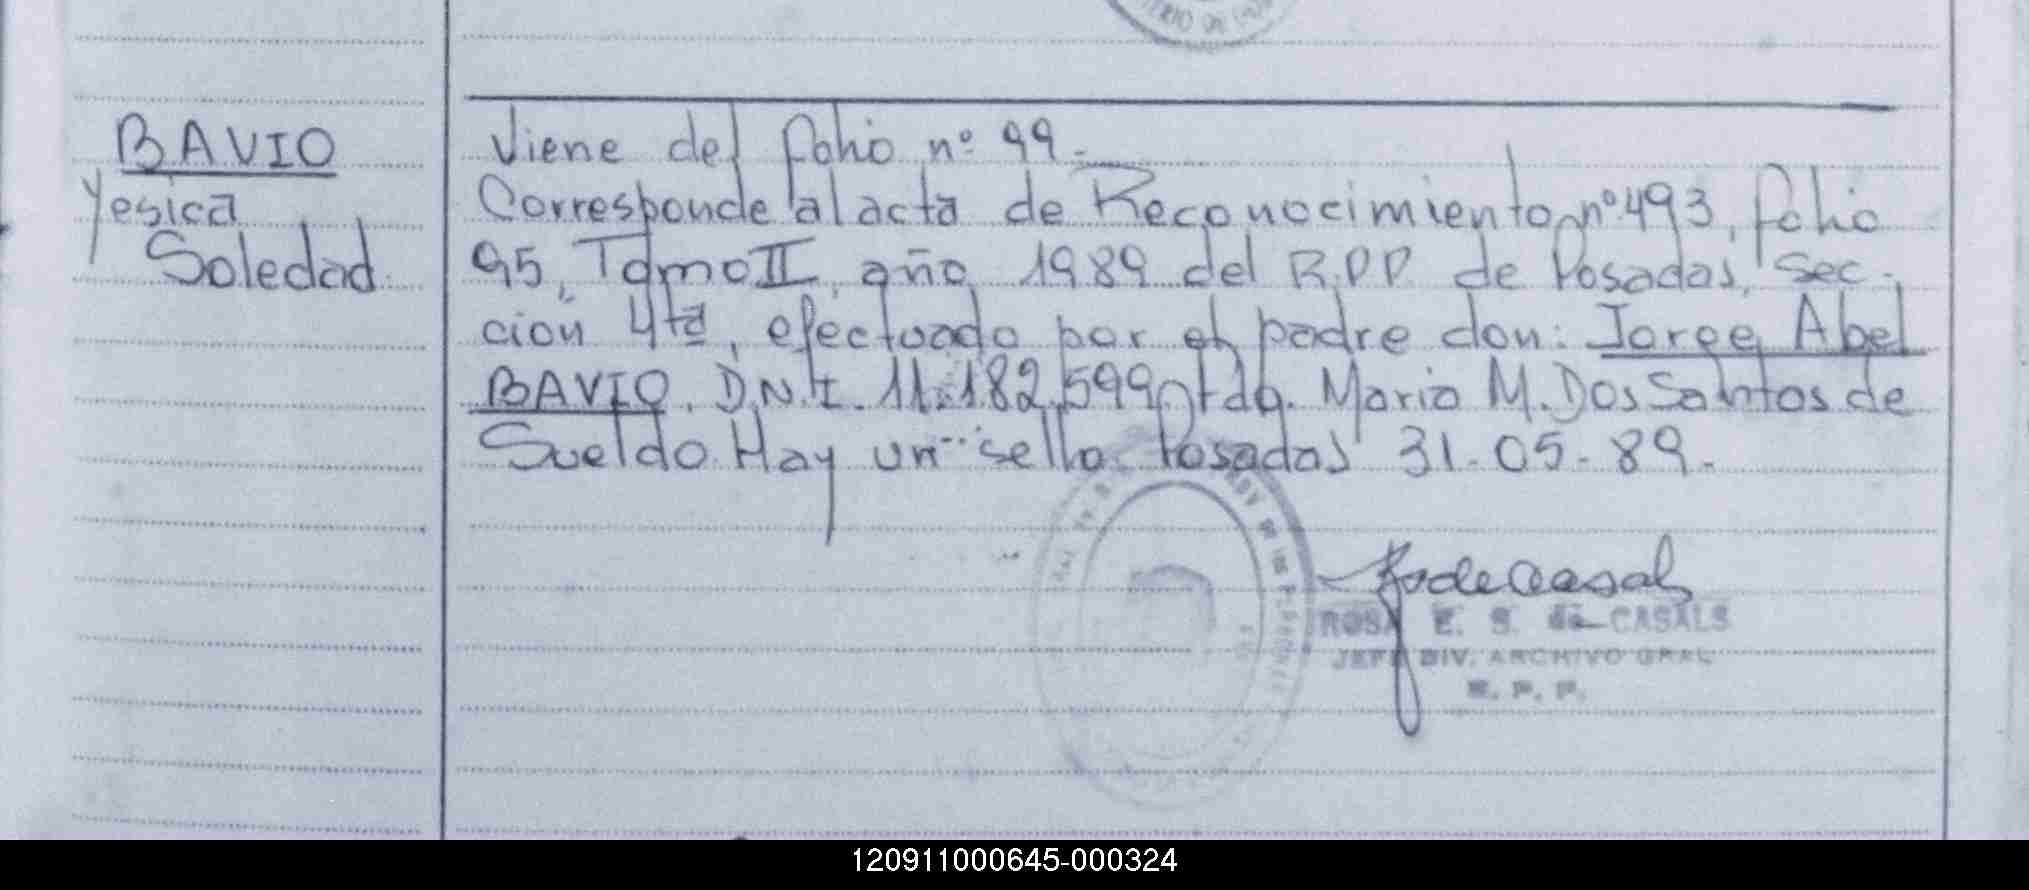 BAVIO
Yesica
Soledad
Viene del folio nº 99.-
Corresponde al acta de Reconocimiento nº 493, folio
95, Tomo II, año 1989 del R.P.P. de Posadas, Sec-
ción 4ta, efectuado por el padre don: Jorge Abel
BAVIO. D.N.I. 11.182.599 fda. Maria M. Dos Santos de
Sueldo. Hay un sello. Posadas 31-05-89.-
ROSA E. S. de CASALS
JEFE DIV. ARCHIVO GRAL
R. P. P.
120911000645-000324